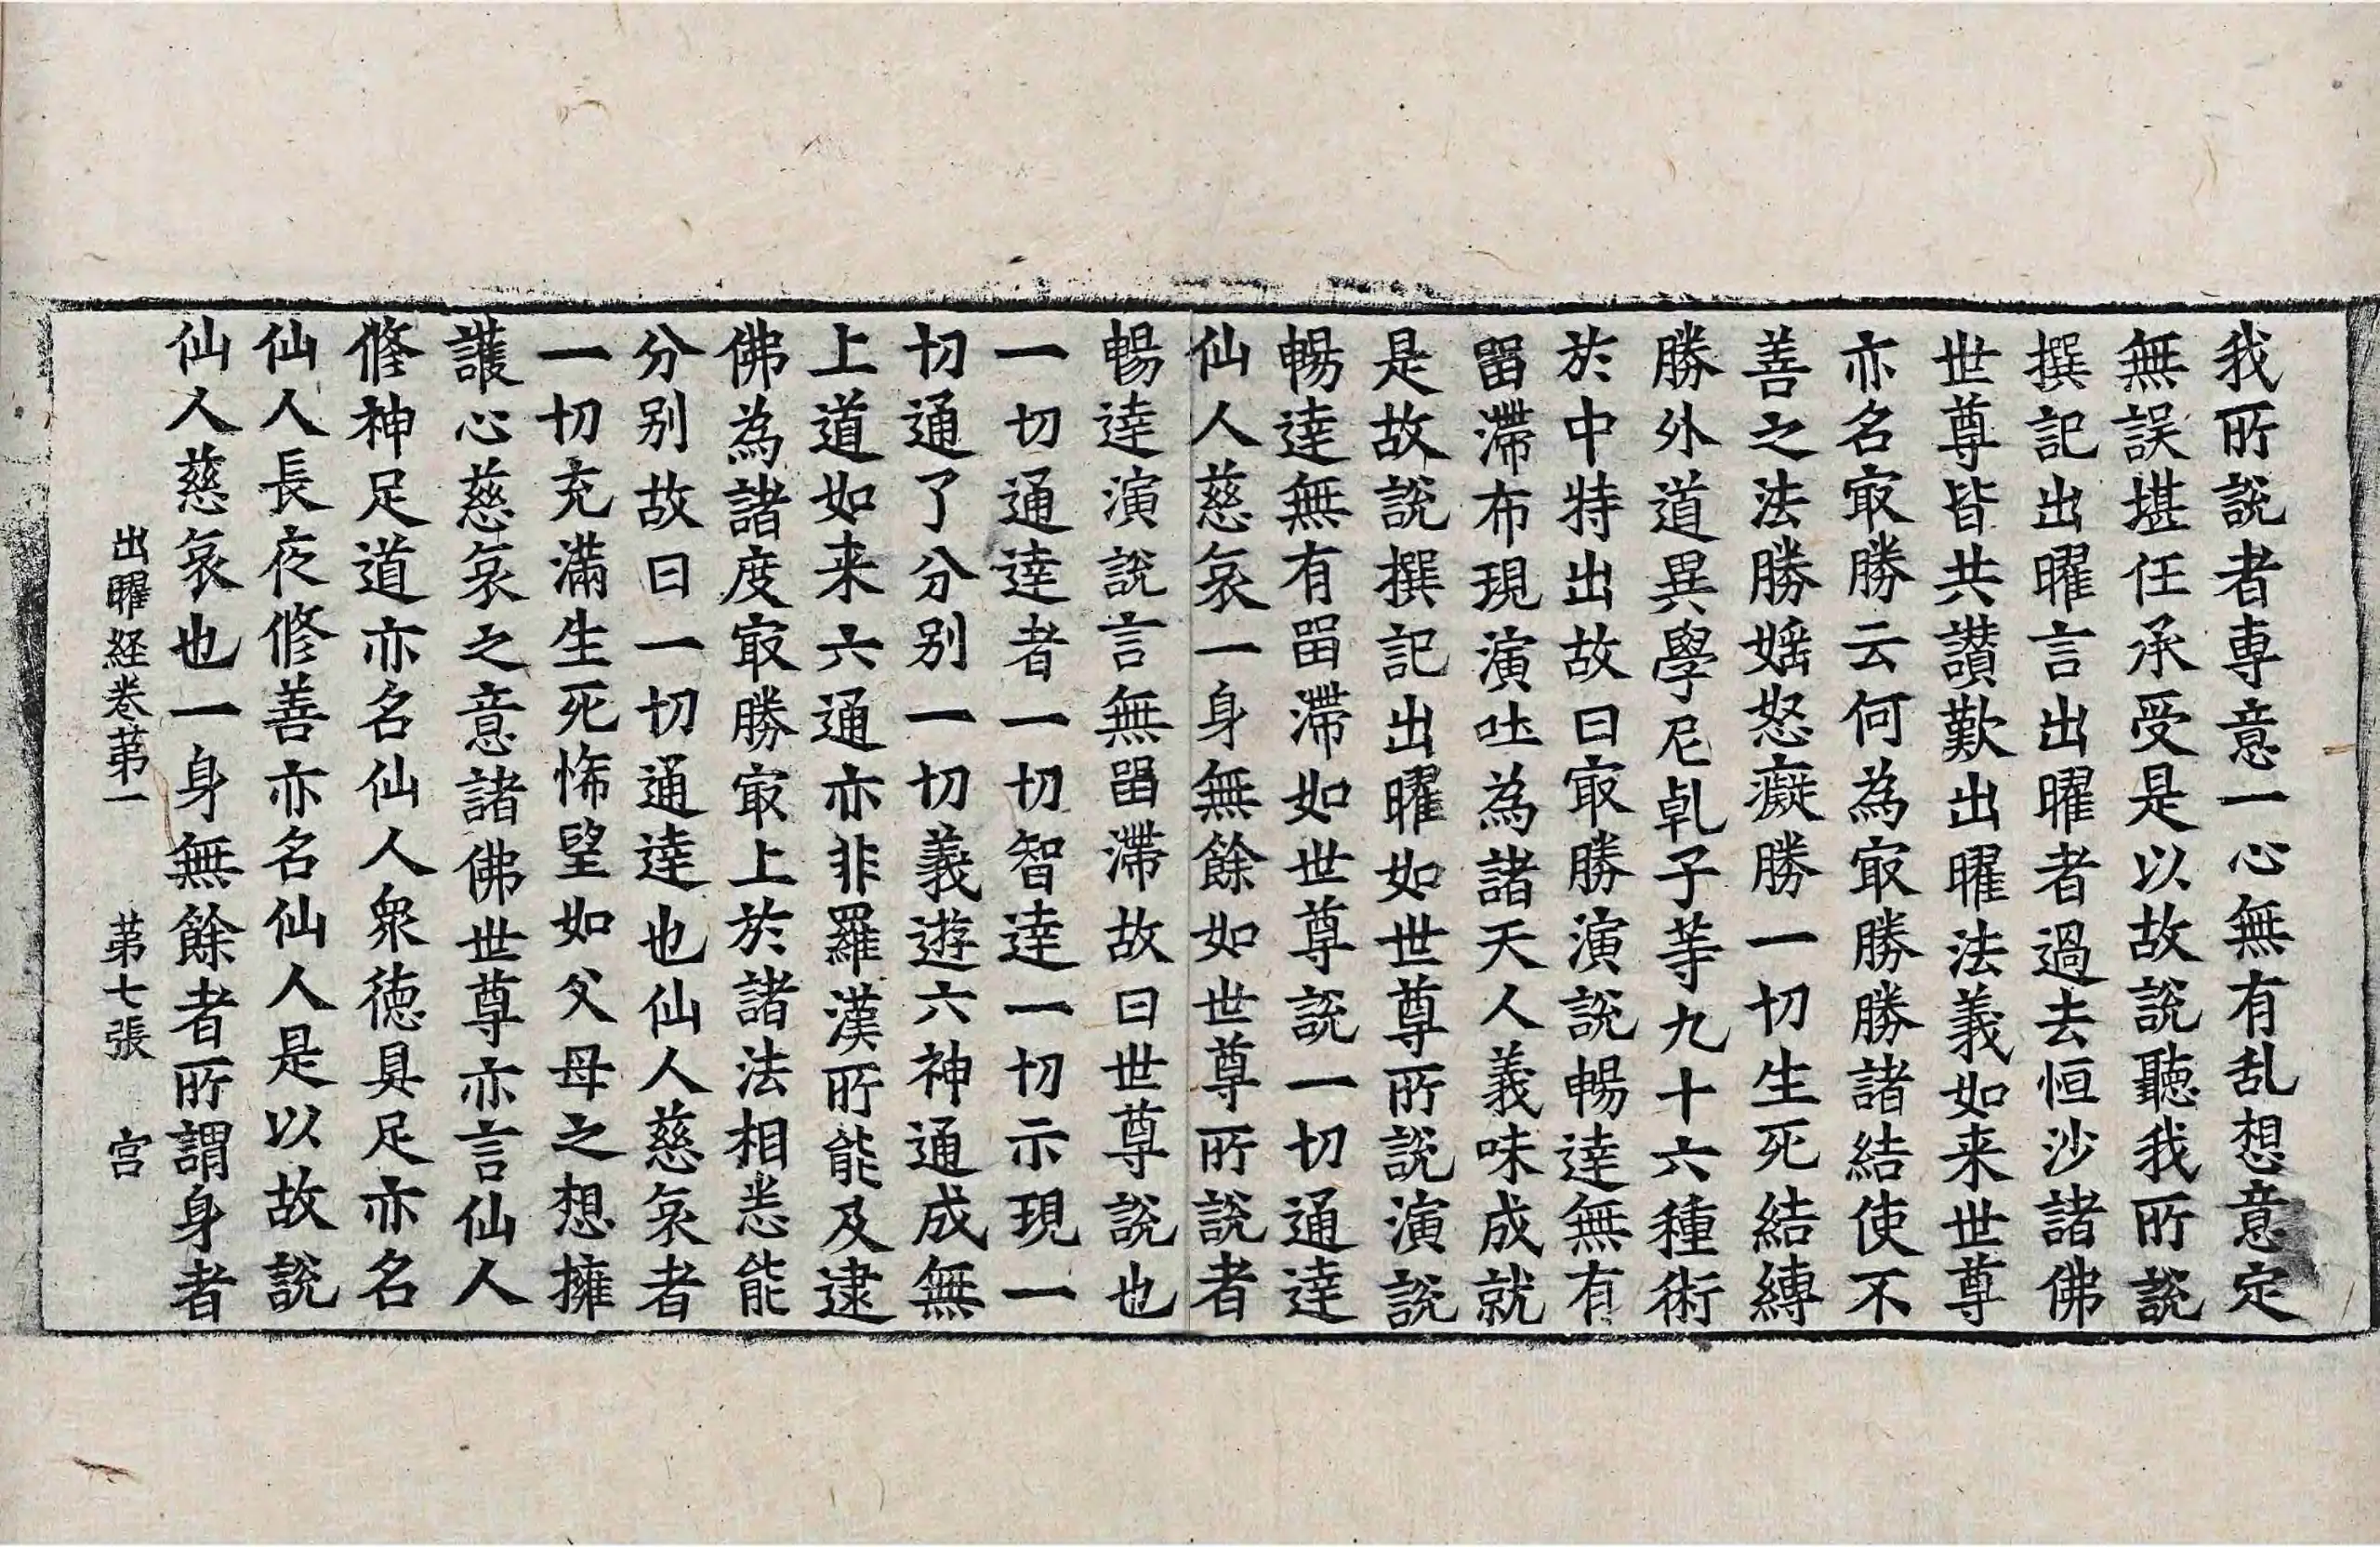 我所說者専意一心無有乱想意定
無誤堪任承受是以故說聽我所說
撰記出曜言出曜者過去恒沙諸佛
世尊皆共讃歎出曜法義如来世尊
亦名㝡勝云何為㝡勝勝諸結使不
善之法勝婬怒癡勝一切生死結縛
勝外道異學尼乹子䓁九十六種術
於中特出故曰㝡勝演說暢達無有
畱滯布現演吐為諸天人義味成就
是故說撰記出曜如世尊所說演說
暢達無有畱滯如世尊說一切通達
仙人慈哀一身無餘如世尊所說者
暢達演說言無畱滯故曰世尊說也
一切通達者一切智達一切示現一
切通了分别一切義遊六神通成無
上道如来六通亦非羅漢所能及逮
佛為諸度㝡勝㝡上於諸法相悉能
分别故曰一切通達也仙人慈哀者
一切充滿生死悕望如父母之想擁
護心慈哀之意諸佛世尊亦言仙人
修神足道亦名仙人衆德具足亦名
仙人長夜修善亦名仙人是以故說
仙人慈哀也一身無餘者所謂身者
出曜経卷苐一 苐七張 宫